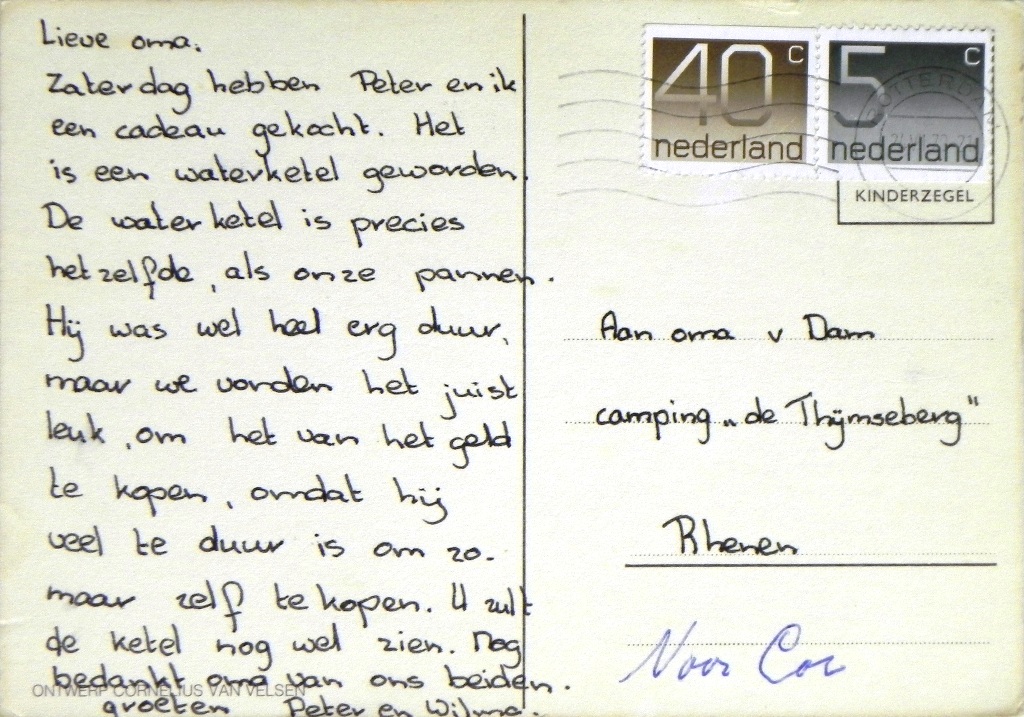 Lieve oma.
Zaterdag hebben Peter en ik
een cadeau gekocht. Het
is een waterketel geworden.
De waterketel is precies
hetzelfde, als onze pannen.
Hij was wel heel erg duur,
maar we vonden het juist
leuk, om het van het geld
te kopen, omdat hij
veel te duur is om zo-
maar zelf te kopen. U zult
de ketel nog wel zien. Nog
bedankt oma van ons beiden.
groeten Peter en Wilma.
ONTWERP CORNELIUS VAN VELSEN
40 c
nederland
5 c
nederland
ROTTERDAM
KINDERZEGEL
Aan oma v Dam
camping „de Thijmseberg"
Rhenen
Voor Cor